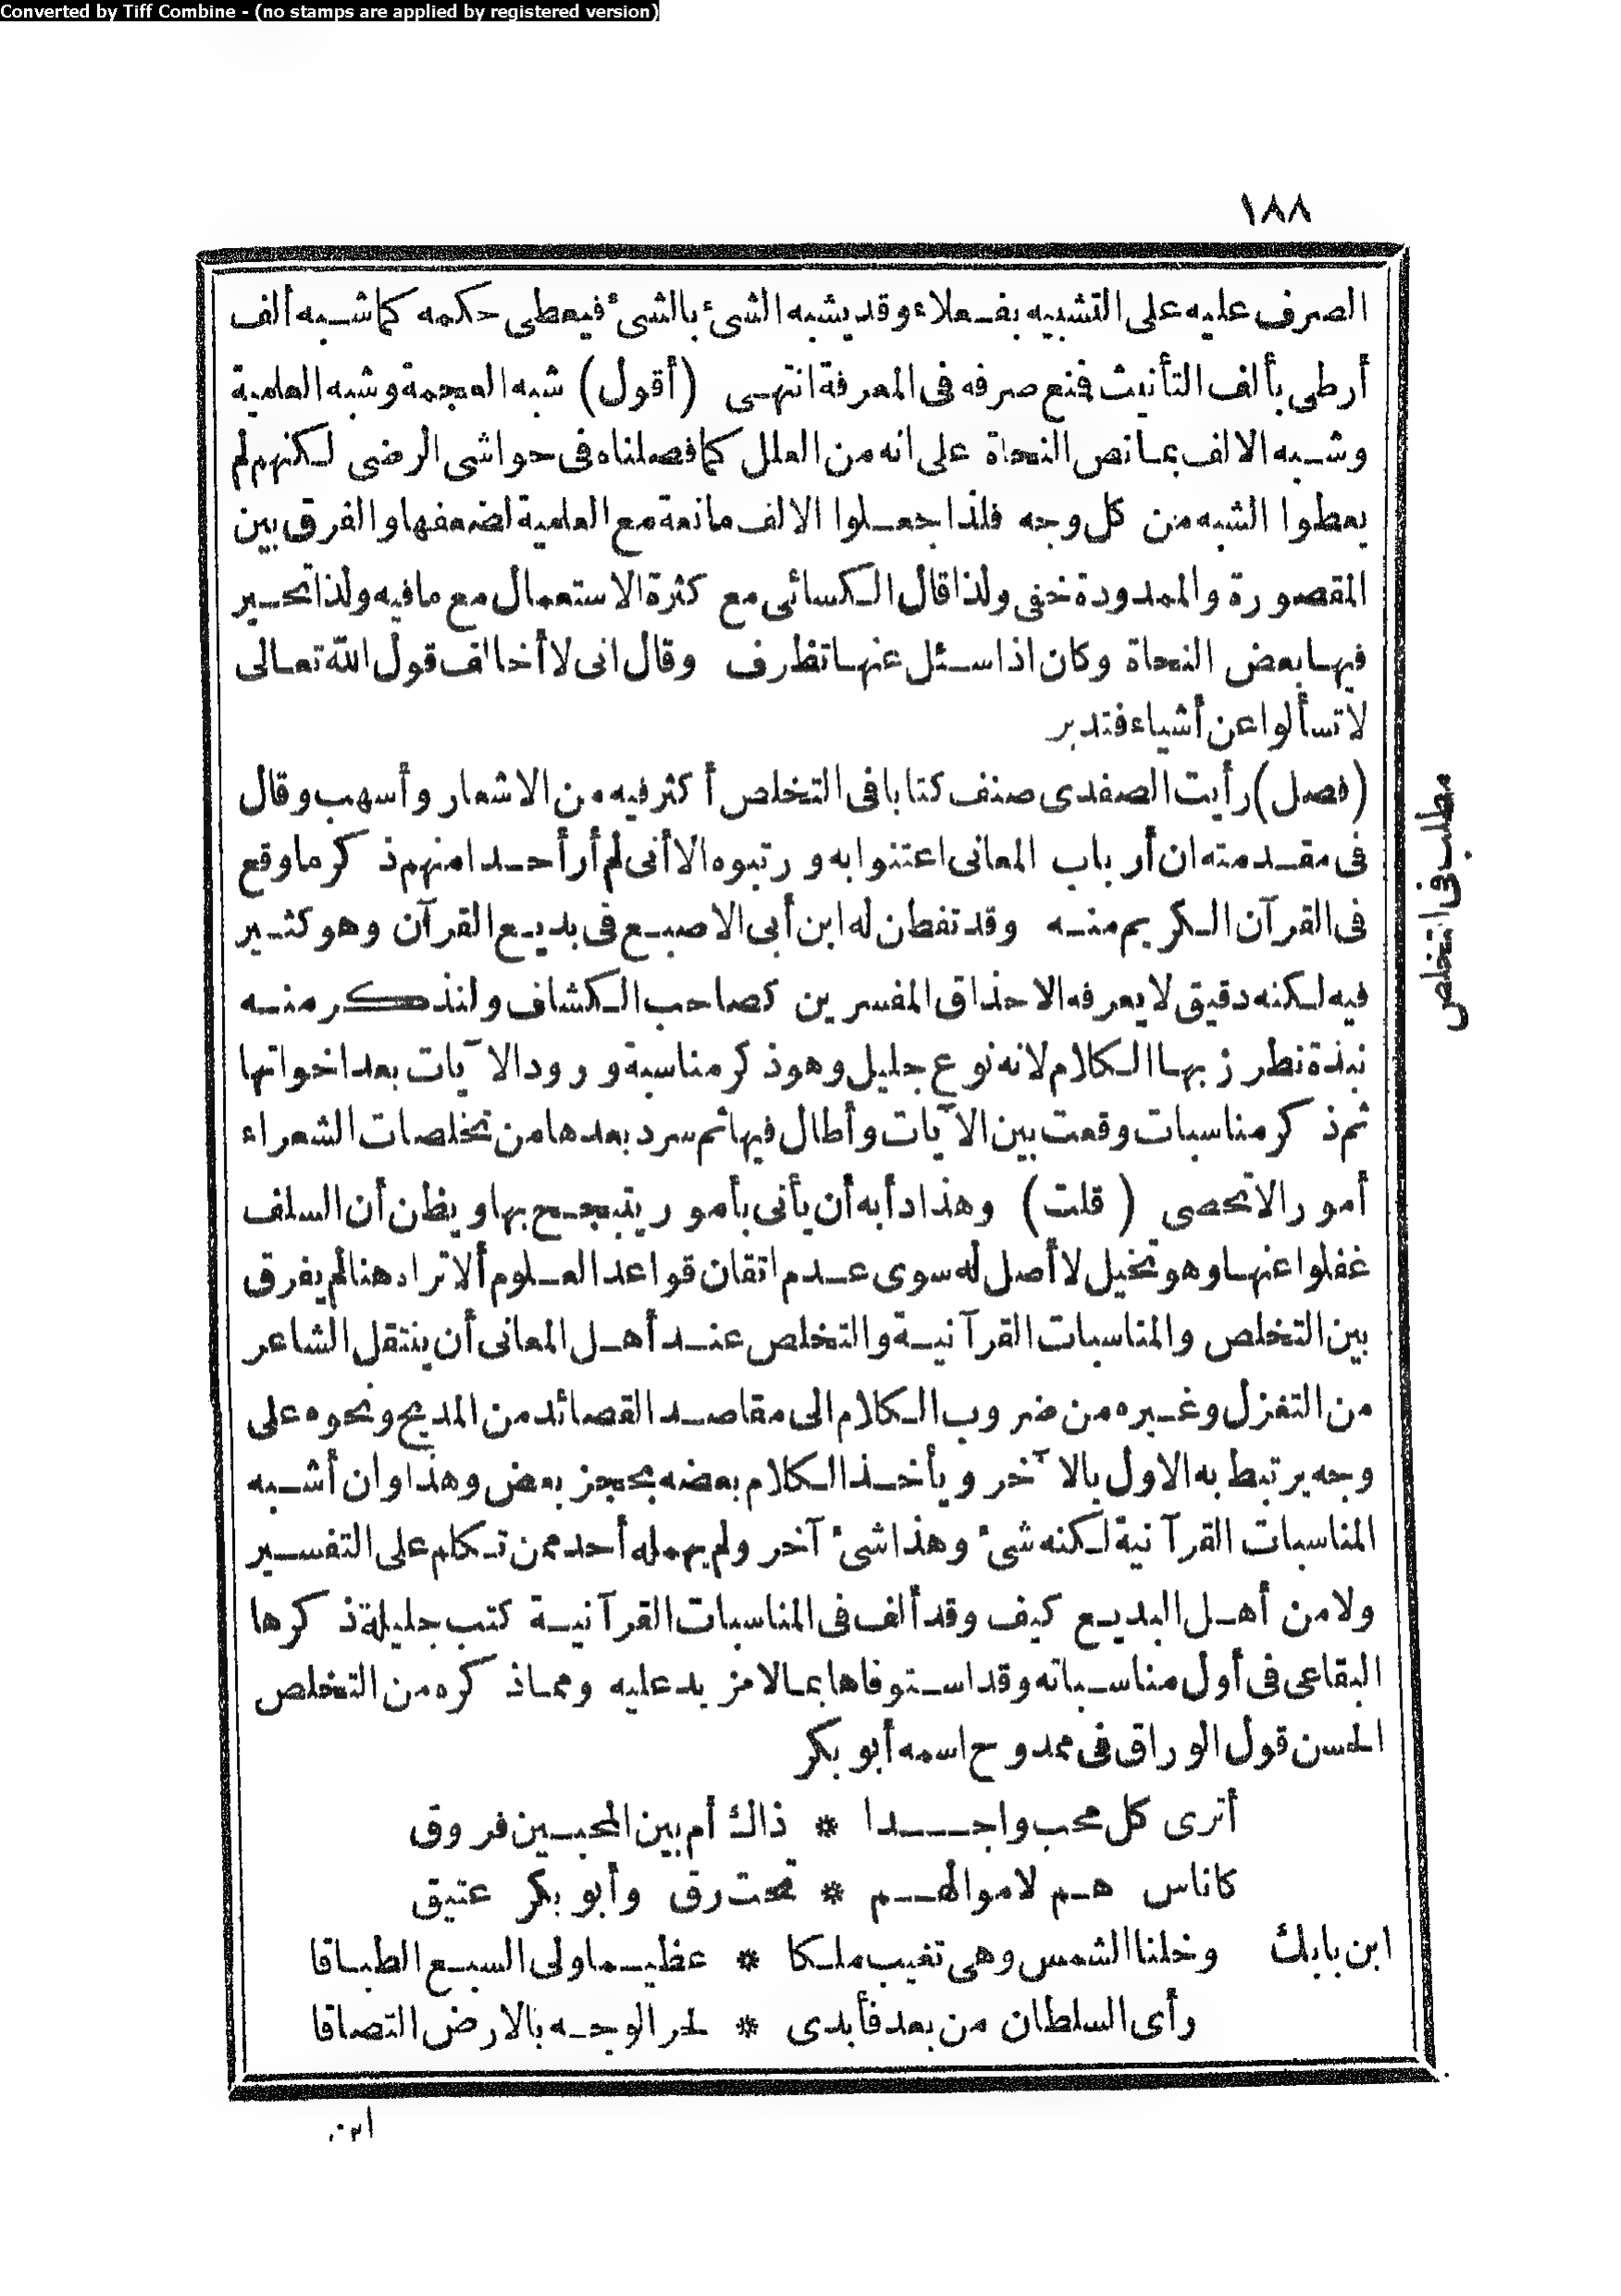 Converted by Tiff Combine - (no stamps are applied by registered version)
١٨٨
الصرف عليه على التشبيه بفعلاء وقد يشبه الشئ بالشئ فيعطى حكمه كما شبه ألف
أرطى بألف التأنيث فمنع صرفه فى المعرفة انتهى (أقول) شبه العجمة وشبه العلمية
وشبه الالف بما نص النحاة على انه من العلل كما فصلناه فى حواشى الرضى لكنهم لم
يعطوا الشبه من كل وجه فلذا جعلوا الالف مانعة مع العلمية لضعفها والفرق بين
المقصورة والممدودة خفى ولذا قال الكسائى مع كثرة الاستعمال مع ما فيه ولذا تحير
فيها بعض النحاة وكان اذا سئل عنها تظرف وقال انى لا أخالف قول الله تعالى
لا تسألوا عن أشياء فتدبر
(فصل) رأيت الصفدى صنف كتابا فى التخلص أكثر فيه من الاشعار وأسهب وقال
فى مقدمته ان أرباب المعانى اعتنوا به ورتبوه الا أنى لم أر أحدا منهم ذكر ما وقع
فى القرآن الكريم منه وقد تفطن له ابن أبى الاصبع فى بديع القرآن وهو كثير
فيه لكنه دقيق لا يعرفه الا حذاق المفسرين كصاحب الكشاف ولنذكر منه
نبذة نطرز بها الكلام لانه نوع جليل وهو ذكر مناسبة ورود الآيات بعد اخواتها
ثم ذكر مناسبات وقعت بين الآيات وأطال فيها ثم سرد بعدها من تخلصات الشعراء
أمورا لا تحصى (قلت) وهذا دأبه أن يأتى بأمور يتبجح بها ويظن أن السلف
غفلوا عنها وهو تخيل لا أصل له سوى عدم اتقان قواعد العلوم ألا تراه هنا لم يفرق
بين التخلص والمناسبات القرآنية والتخلص عند أهل المعانى أن ينتقل الشاعر
من التغزل وغيره من ضروب الكلام الى مقاصد القصائد من المديح ونحوه على
وجه يرتبط به الاول بالآخر ويأخذ الكلام بعضه بحجز بعض وهذا وان أشبه
المناسبات القرآنية لكنه شئ وهذا شئ آخر ولم يهمله أحد ممن تكلم على التفسير
ولا من أهل البديع كيف وقد ألف فى المناسبات القرآنية كتب جليلة ذكرها
البقاعى فى أول مناسباته وقد استوفاها بما لا مزيد عليه ومما ذكره من التخلص
الحسن قول الوراق فى ممدوح اسمه أبو بكر
أترى كل محب واجدا * ذاك أم بين المحبين فروق
كاناس هم لاموالهم * تحت رق وأبو بكر عتيق
ابن بابك وخلنا الشمس وهى تغيب ملكا * عظيما ولى السبع الطباقا
رأى السلطان من بعد فأبدى * لحر الوجه بالارض التصاقا
ابن
مطلب فى التخلص